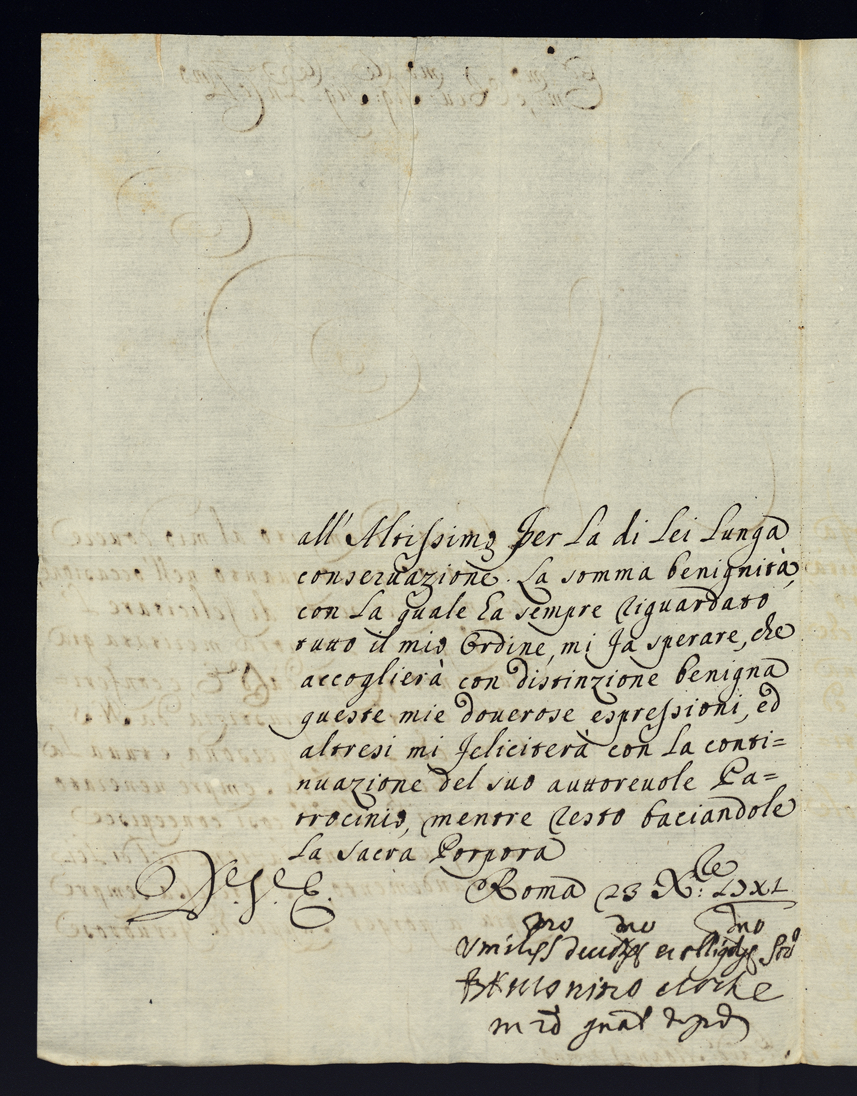 all' Altissimo per la di Lei lunga
conseruazione. La somma benignità,
con la quale ha sempre riguardato
tutto il mio Ordine, mi fa sperare, che
accoglierà con distinzione benigna
queste mie douerose espressioni, ed
altresi mi feliciterà con la conti=
nuazione del suo auttoreuole Pa=
trocinio, mentre resto baciandole
la Sacra Porpora
Roma 23 X.bre
D. V. E.
Antonino Cloche